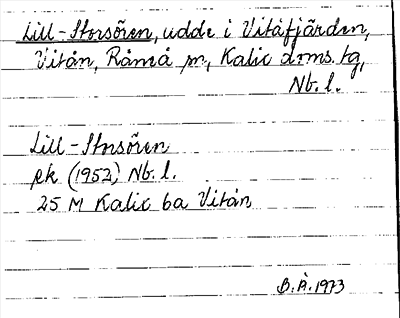 Lill-Storsören, udde i Vitåfjärden,
Vitån, Råneå sn, Kalix dms. tg,
Nb. l.
Lill-Storsören
ek (1952) Nb. l.
25 M Kalix 6a Vitån
B. Å. 1973